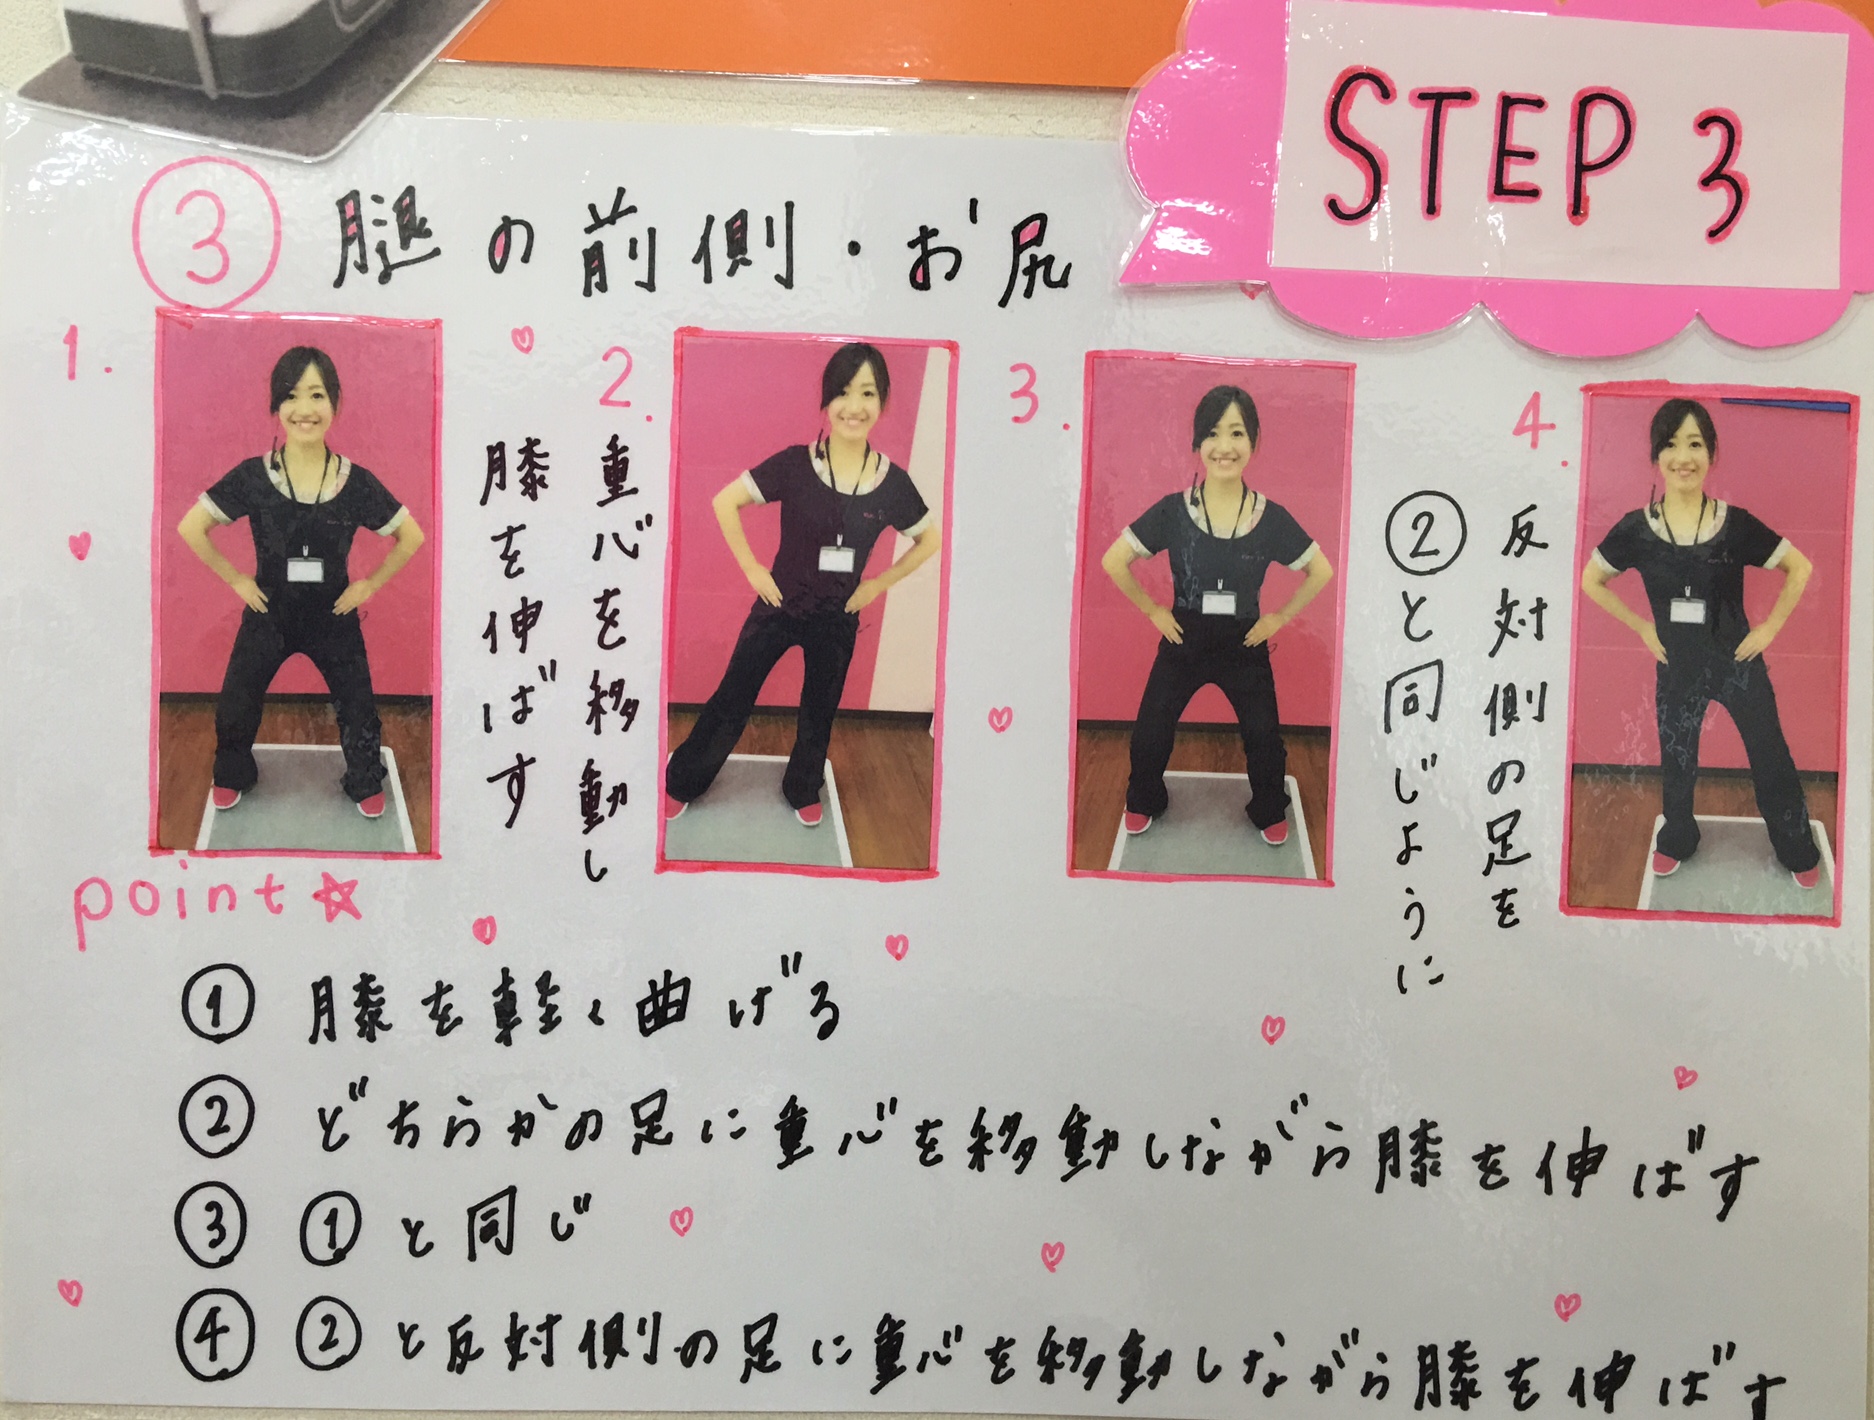 STEP 3
③ 腿の前側・お尻
1.
2.
重心を移動し
膝を伸ばす
3.
4.
反対側の足を
②と同じように
point☆
① 膝を軽く曲げる
② どちらかの足に重心を移動しながら膝を伸ばす
③ ①と同じ
④ ②と反対側の足に重心を移動しながら膝を伸ばす